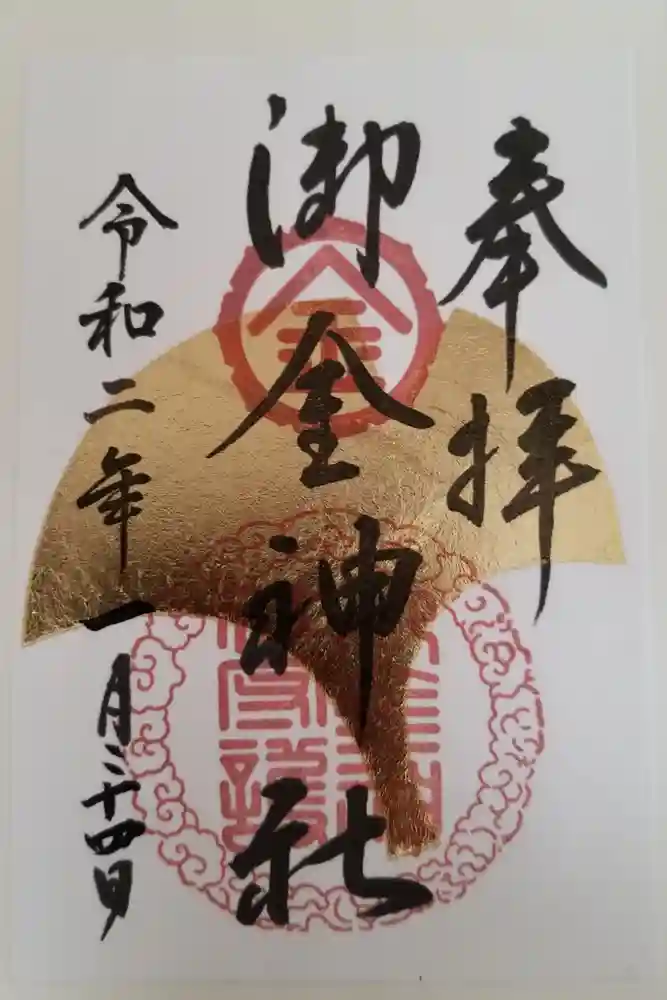 奉拝
御金神社
令和二年一月二十四日
金